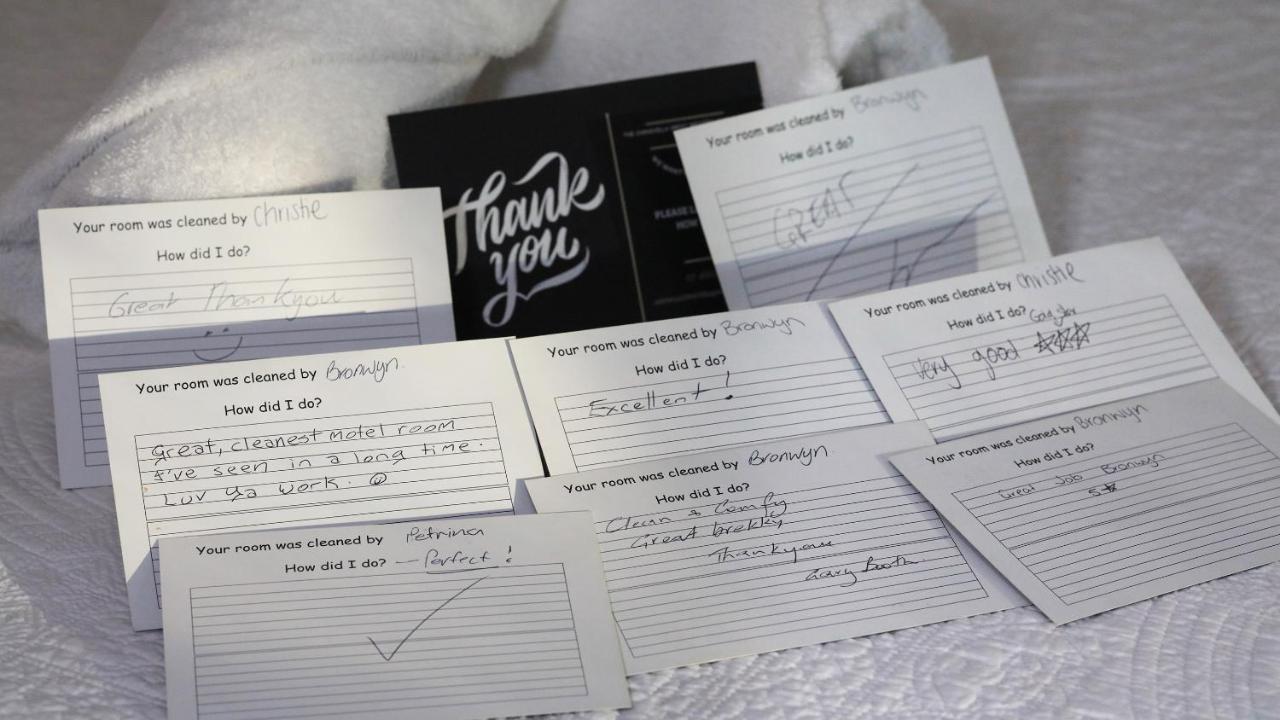 Thank
you
PLEASE L
HOW
Your room was cleaned by Bronwyn
How did I do?
GREAT
Your room was cleaned by Christie
How did I do?
Great Thankyou
Your room was cleaned by Christie
How did I do?
Very good
Your room was cleaned by Bronwyn
How did I do?
Excellent!
Your room was cleaned by Bronwyn.
How did I do?
Great, cleanest motel room
I've seen in a long time.
Luv ya work.
Your room was cleaned by Bronwyn
How did I do?
Great Job Bronwyn
5★
Your room was cleaned by Bronwyn
How did I do?
Clean & Comfy
Great brekky
Thankyou
Gary Booth
Your room was cleaned by Petrina
How did I do? — Perfect!